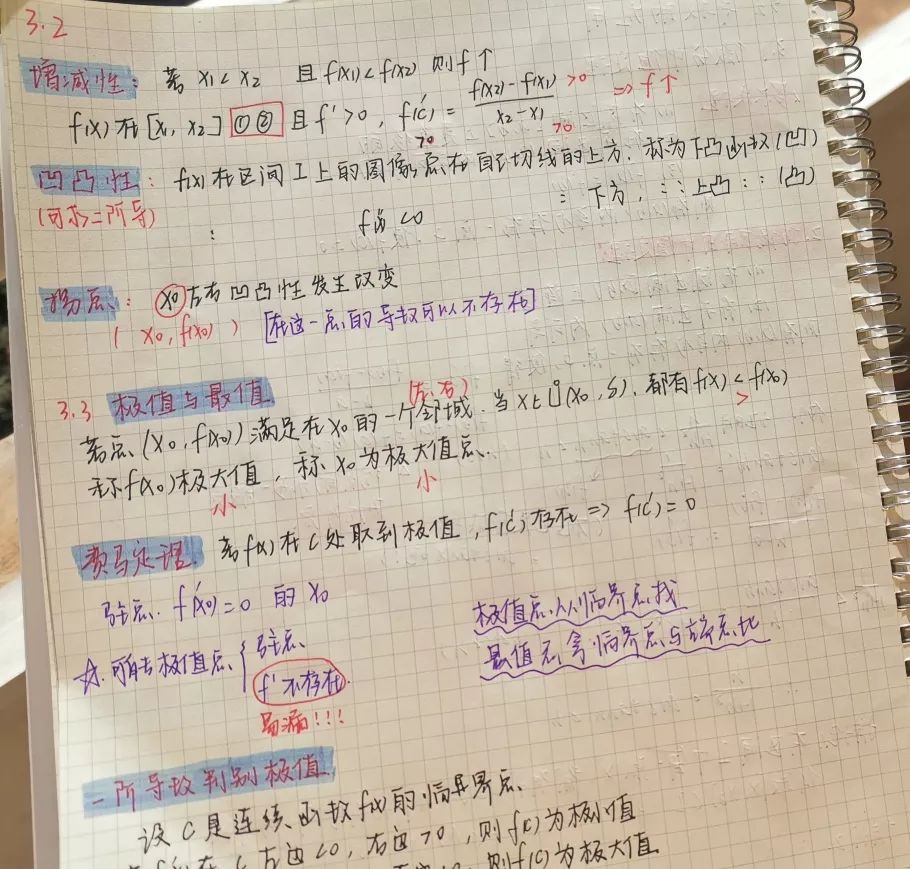 3.2
增减性: 若 x₁<x₂ 且 f(x₁)<f(x₂) 则 f↑
f(x)在[x₁, x₂] ①② 且 f'>0, f'(c) = (f(x₂)-f(x₁))/(x₂-x₁) >0 ⇒ f↑
>0 >0
凹凸性: f(x)在区间I上的图像总在自己切线的上方, 称为下凸函数(凹)
(可求二阶导) : 下方, :: 上凸 :: (凸)
: f''(x) <0
拐点: x₀左右凹凸性发生改变
( x₀, f(x₀) ) [在这一点的导数可以不存在]
3.3 极值与最值 (左、右)
若点(x₀, f(x₀))满足在x₀的一个邻域, 当x∈Ů(x₀, δ), 都有f(x)<f(x₀)
>
称f(x₀)极大值, 称x₀为极大值点.
小 小
费马定理. 若f(x)在C处取到极值, f'(c)存在 ⇒ f'(c)=0
驻点. f'(x₀)=0 的 x₀
极值点从临界点找
最值点拿临界点与端点比
☆. 可能极值点 { 驻点
f'不存在.
易漏!!!
一阶导数判别极值
设C是连续函数f(x)的临界点.
在C左边<0, 右边>0, 则f(c)为极小值
则f(c)为极大值